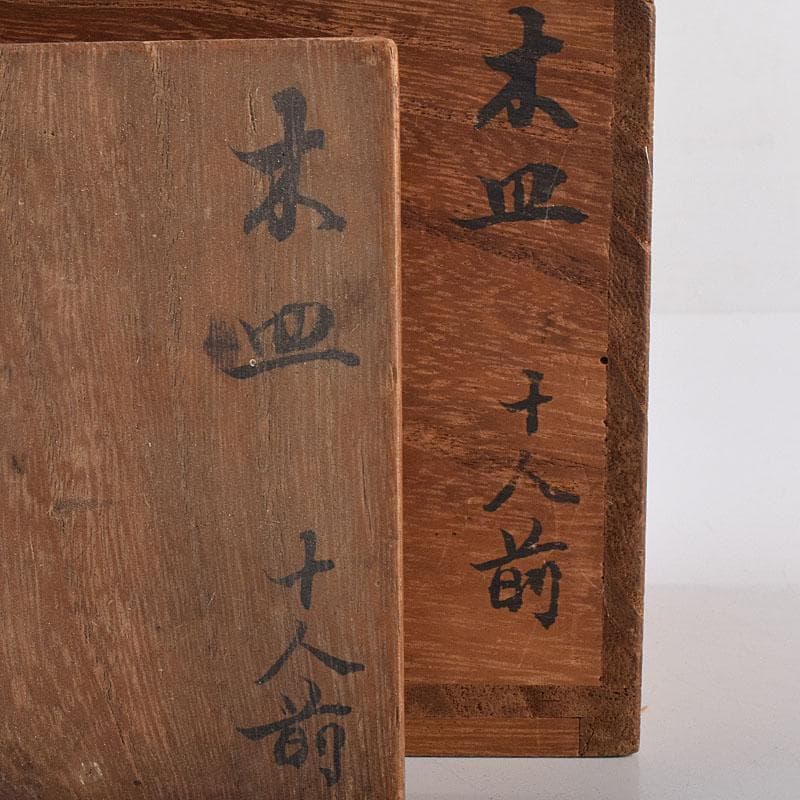 木皿
十人前
木皿
十人前